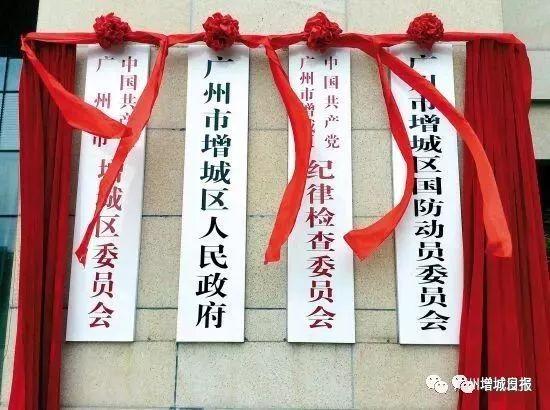 中国共产党
广州市
增城区委员会
广州市增城区人民政府
中国共产党
广州市增城区
纪律检查委员会
广州市增城区国防动员委员会
州增城日报